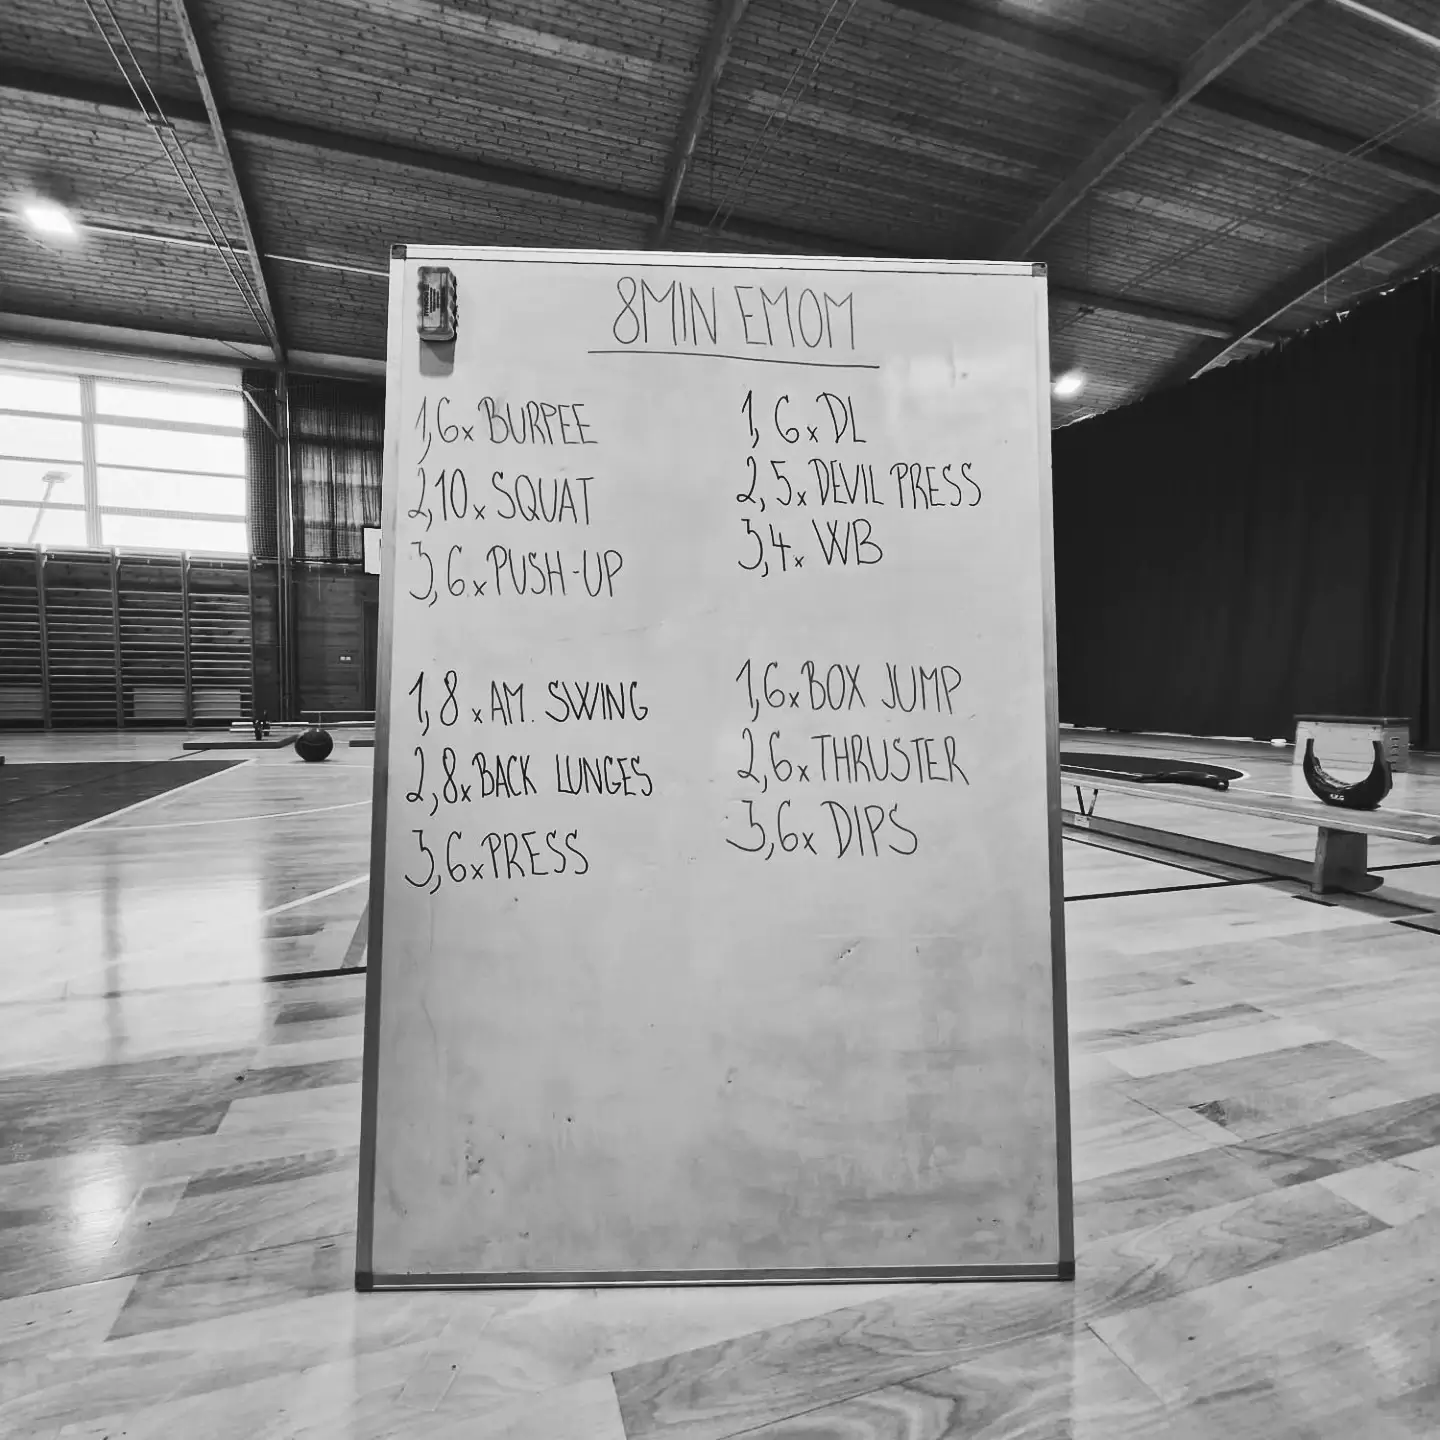 8MIN EMOM
1, 6x BURPEE
2, 10x SQUAT
3, 6x PUSH-UP
1, 6x DL
2, 5x DEVIL PRESS
3, 4x WB
1, 8x AM. SWING
2, 8x BACK LUNGES
3, 6x PRESS
1, 6x BOX JUMP
2, 6x THRUSTER
3, 6x DIPS